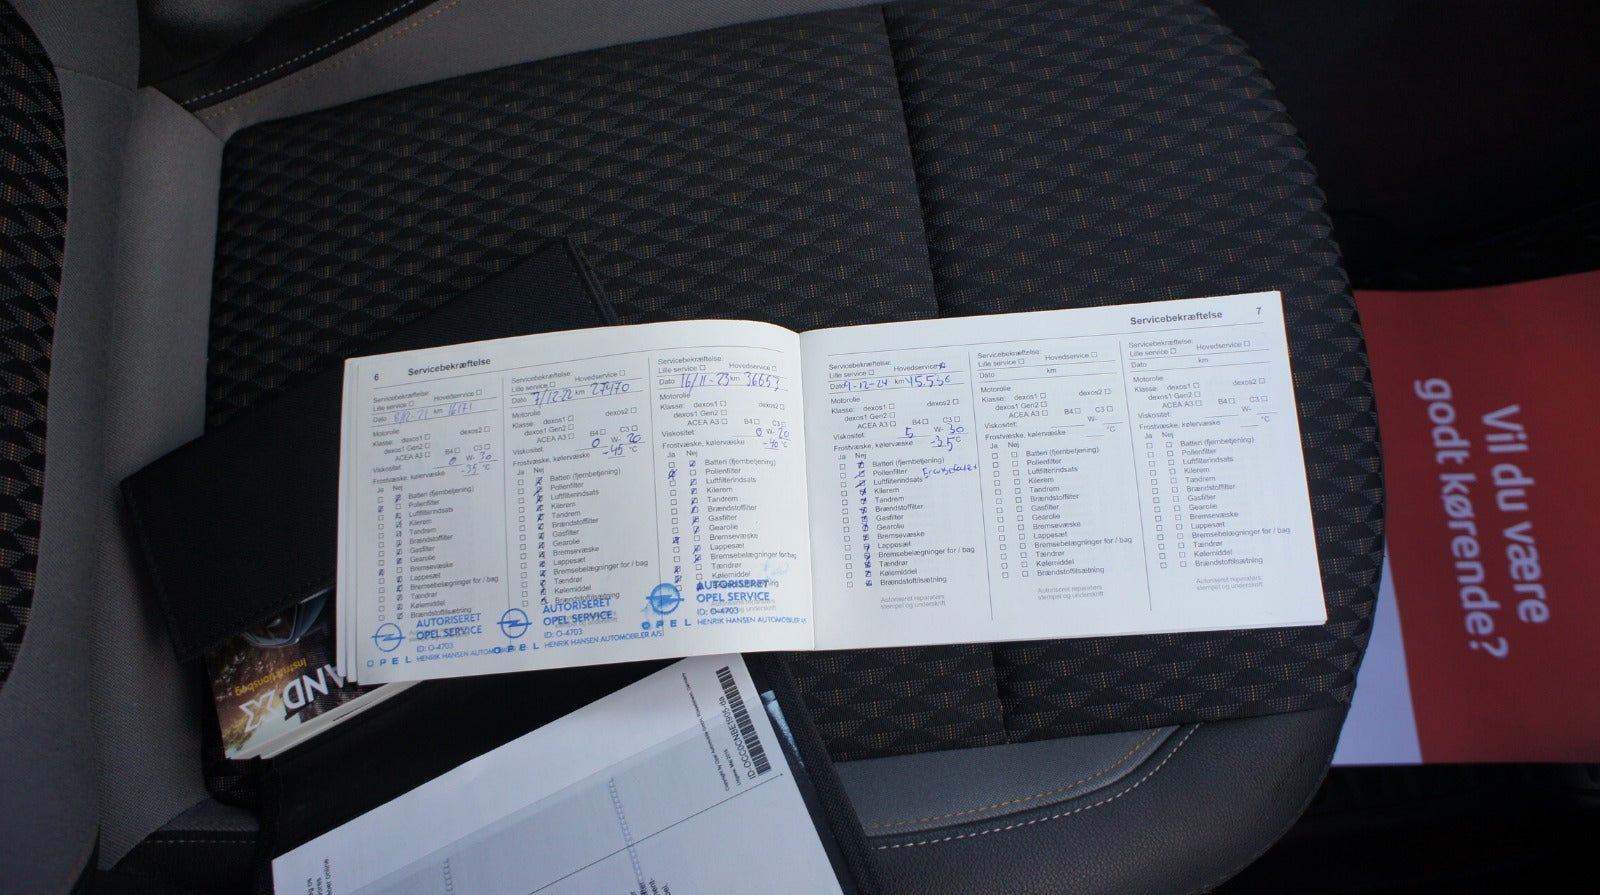 6 Servicebekræftelse
Servicebekræftelse:
Lille service ☐ Hovedservice ☐
Dato 8/12-21 km 16171
Motorolie
Klasse: dexos1 ☐ dexos2 ☐
dexos1 Gen2 ☐
ACEA A3 ☐ B4 ☐ C3 ☐
Viskositet: 0 W- 30
Frostvæske, kølervæske -35 °C
Ja Nej
Batteri (fjernbetjening)
Pollenfilter
Luftfilterindsats
Kilerem
Tandrem
Brændstoffilter
Gasfilter
Gearolie
Bremsevæske
Lappesæt
Bremsebelægninger for / bag
Tændrør
Kølemiddel
Brændstoftilsætning
AUTORISERET
OPEL SERVICE
ID: O-4703
OPEL HENRIK HANSEN AUTOMOB
Servicebekræftelse:
Lille service ☐ Hovedservice ☐
Dato 7/12-22 km 27470
Motorolie
Klasse: dexos1 ☐ dexos2 ☐
dexos1 Gen2 ☐
ACEA A3 ☐ B4 ☐ C3 ☐
Viskositet: 0 W- 20
Frostvæske, kølervæske -45 °C
Ja Nej
Batteri (fjernbetjening)
Pollenfilter
Luftfilterindsats
Kilerem
Tandrem
Brændstoffilter
Gasfilter
Gearolie
Bremsevæske
Lappesæt
Bremsebelægninger for / bag
Tændrør
Kølemiddel
Brændstoftilsætning
AUTORISERET
OPEL SERVICE
ID: O-4703
OPEL HENRIK HANSEN AUTOMOBILER A/S
Servicebekræftelse:
Lille service ☐ Hovedservice ☐
Dato 16/11-23 km 36653
Motorolie
Klasse: dexos1 ☐ dexos2 ☐
dexos1 Gen2 ☐
ACEA A3 ☐ B4 ☐ C3 ☐
Viskositet: 0 W- 20
Frostvæske, kølervæske -40 °C
Ja Nej
Batteri (fjernbetjening)
Pollenfilter
Luftfilterindsats
Kilerem
Tandrem
Brændstoffilter
Gasfilter
Gearolie
Bremsevæske
Lappesæt
Bremsebelægninger for/bag
Tændrør
Kølemiddel
AUTORISERET
OPEL SERVICE
ID: O-4703
OPEL HENRIK HANSEN AUTOMOBILER AS
Servicebekræftelse 7
Servicebekræftelse:
Lille service ☐ Hovedservice
Dato 9-12-24 km 45.536
Motorolie
Klasse: dexos1 ☐ dexos2 ☐
dexos1 Gen2 ☐
ACEA A3 ☐ B4 ☐ C3 ☐
Viskositet: 5 W- 30
Frostvæske, kølervæske -35 °C
Ja Nej
Batteri (fjernbetjening)
Pollenfilter
Luftfilterindsats
Kilerem
Tandrem
Brændstoffilter
Gasfilter
Gearolie
Bremsevæske
Lappesæt
Bremsebelægninger for / bag
Tændrør
Kølemiddel
Brændstoftilsætning
Autoriseret reparatørs
stempel og underskrift
Servicebekræftelse:
Lille service ☐ Hovedservice ☐
Dato km
Motorolie
Klasse: dexos1 ☐ dexos2 ☐
dexos1 Gen2 ☐
ACEA A3 ☐ B4 ☐ C3 ☐
Viskositet: W-
Frostvæske, kølervæske °C
Ja Nej
☐ ☐ Batteri (fjernbetjening)
☐ ☐ Pollenfilter
☐ ☐ Luftfilterindsats
☐ ☐ Kilerem
☐ ☐ Tandrem
☐ ☐ Brændstoffilter
☐ ☐ Gasfilter
☐ ☐ Gearolie
☐ ☐ Bremsevæske
☐ ☐ Lappesæt
☐ ☐ Bremsebelægninger for / bag
☐ ☐ Tændrør
☐ ☐ Kølemiddel
☐ ☐ Brændstoftilsætning
Autoriseret reparatørs
stempel og underskrift
Servicebekræftelse:
Lille service ☐ Hovedservice ☐
Dato km
Motorolie
Klasse: dexos1 ☐ dexos2 ☐
dexos1 Gen2 ☐
ACEA A3 ☐ B4 ☐ C3 ☐
Viskositet: W-
Frostvæske, kølervæske °C
Ja Nej
☐ ☐ Batteri (fjernbetjening)
☐ ☐ Pollenfilter
☐ ☐ Luftfilterindsats
☐ ☐ Kilerem
☐ ☐ Tandrem
☐ ☐ Brændstoffilter
☐ ☐ Gasfilter
☐ ☐ Gearolie
☐ ☐ Bremsevæske
☐ ☐ Lappesæt
☐ ☐ Bremsebelægninger for / bag
☐ ☐ Tændrør
☐ ☐ Kølemiddel
☐ ☐ Brændstoftilsætning
Autoriseret reparatørs
stempel og underskrift
Vil du være
godt kørende?
AND X
Instruktionsbog